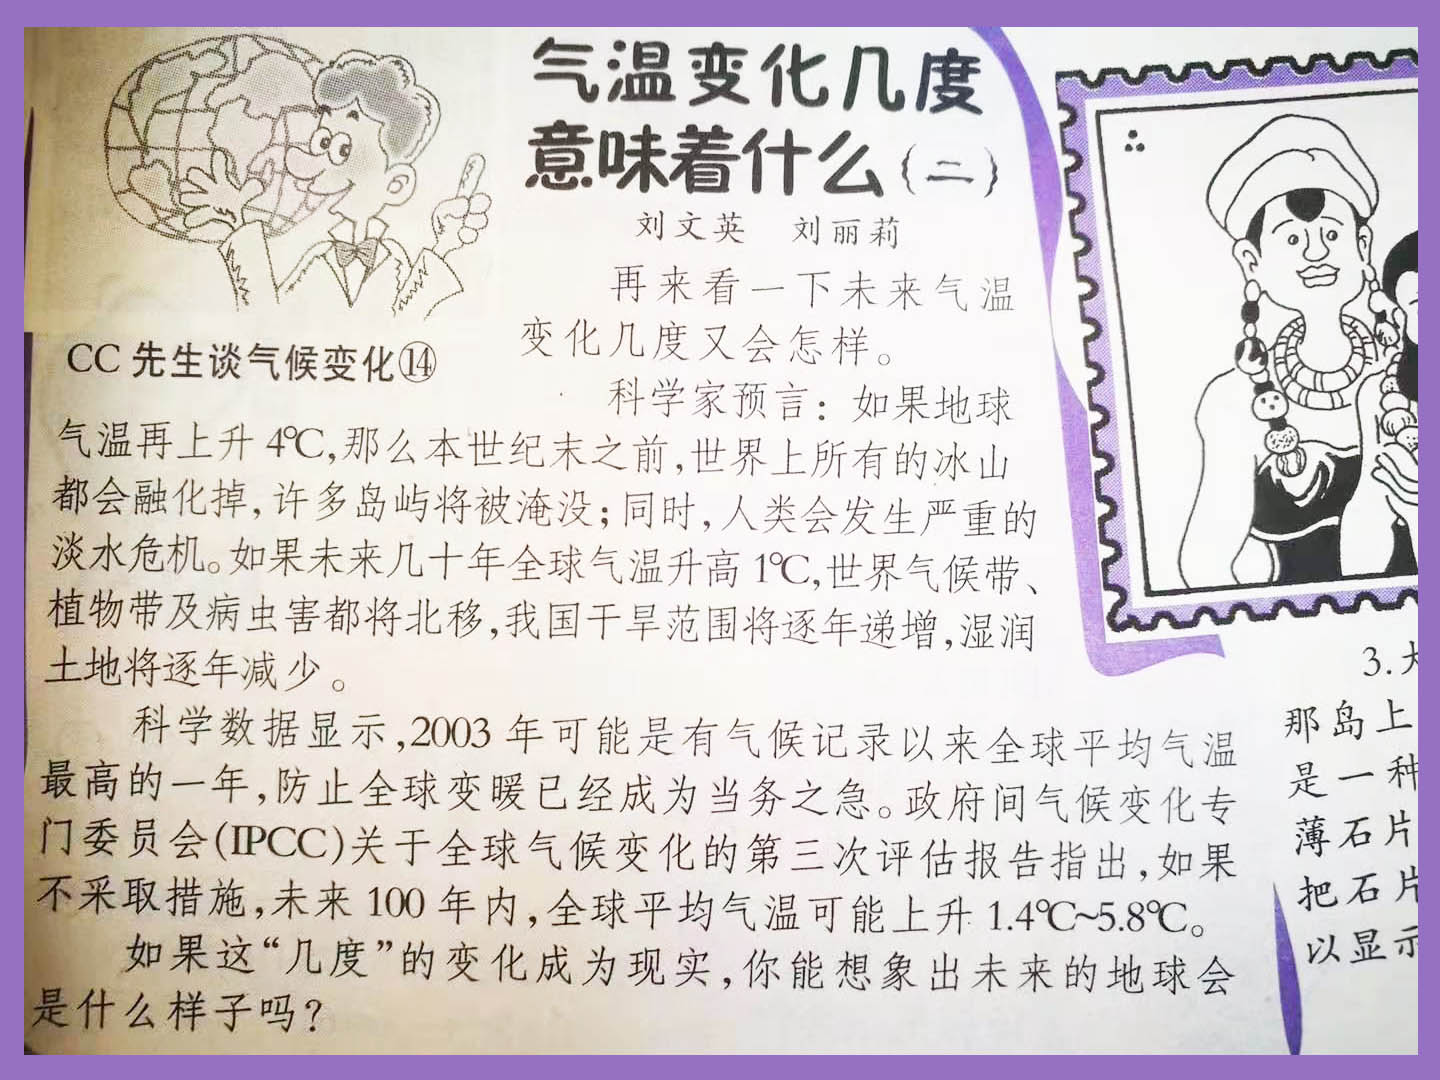 气温变化几度
意味着什么(二)
刘文英 刘丽莉
CC 先生谈气候变化⑭
再来看一下未来气温
变化几度又会怎样。
科学家预言：如果地球
气温再上升 4℃,那么本世纪末之前,世界上所有的冰山
都会融化掉,许多岛屿将被淹没;同时,人类会发生严重的
淡水危机。如果未来几十年全球气温升高 1℃,世界气候带、
植物带及病虫害都将北移,我国干旱范围将逐年递增,湿润
土地将逐年减少。
科学数据显示,2003 年可能是有气候记录以来全球平均气温
最高的一年,防止全球变暖已经成为当务之急。政府间气候变化专
门委员会(IPCC)关于全球气候变化的第三次评估报告指出,如果
不采取措施,未来 100 年内,全球平均气温可能上升 1.4℃~5.8℃。
如果这“几度”的变化成为现实,你能想象出未来的地球会
是什么样子吗?
3.大
那岛上
是一种
薄石片
把石片
以显示